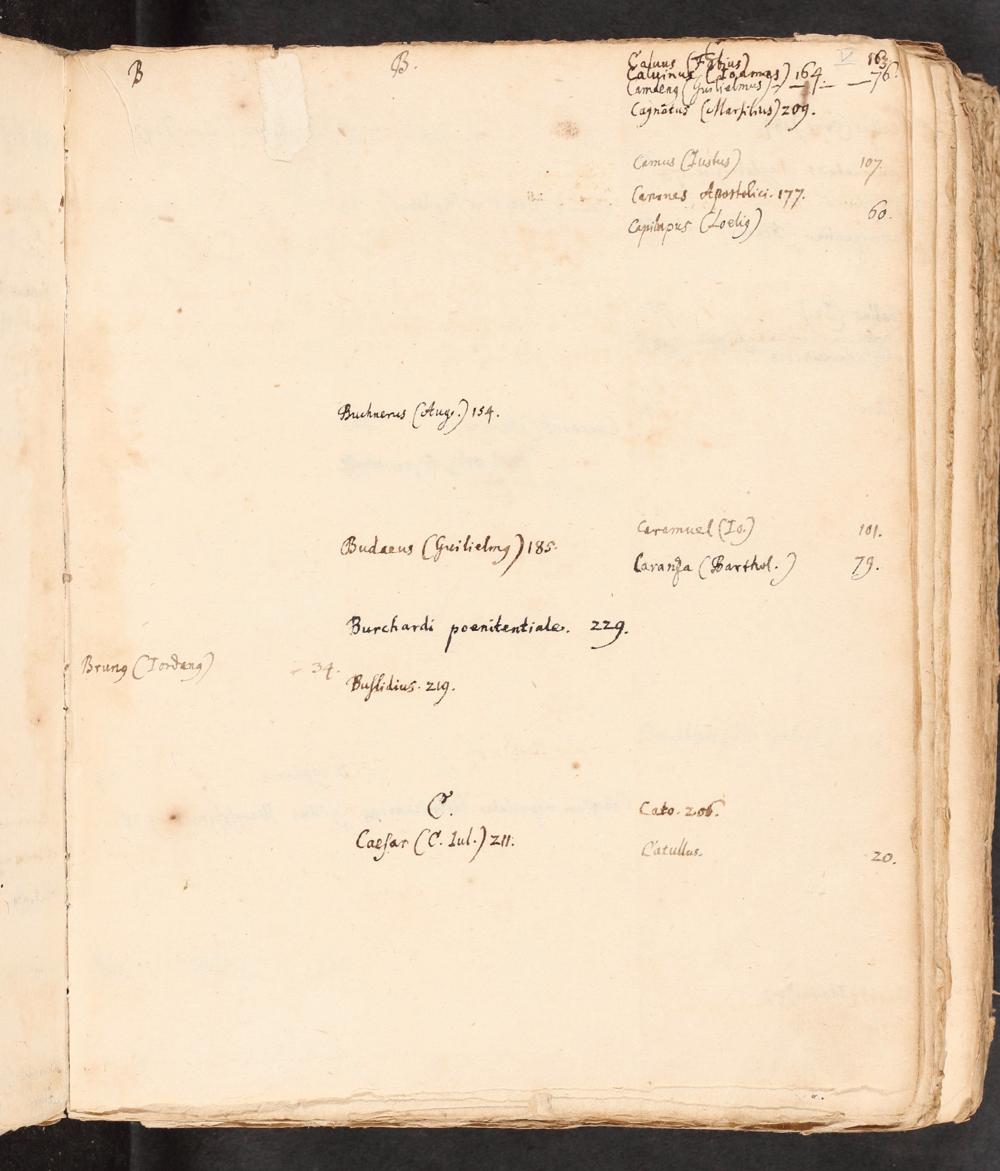 B
Brunꝯ (Jordanꝯ) - 34.
B.
Buchnerus (Aug.) 154.
Budaeus (Guilielmꝯ) 185.
Burchardi poenitentiale. 229.
Buslidius. 219.
C.
Caesar (C. Iul.) 211.
C
V
Caluus (Fabius) 163.
Calvinus (Ioannes) 164.
Camdenꝯ (Guilielmus) — — — 76.
Cagnatus (Marsilius) 209.
Camus (Iustus) 107
Canones Apostolici. 177.
Capilupus (Loeliꝯ) 60.
Caramuel (Io.) 101.
Caranza (Barthol.) 79.
Cato. 206.
Catullus. 20.